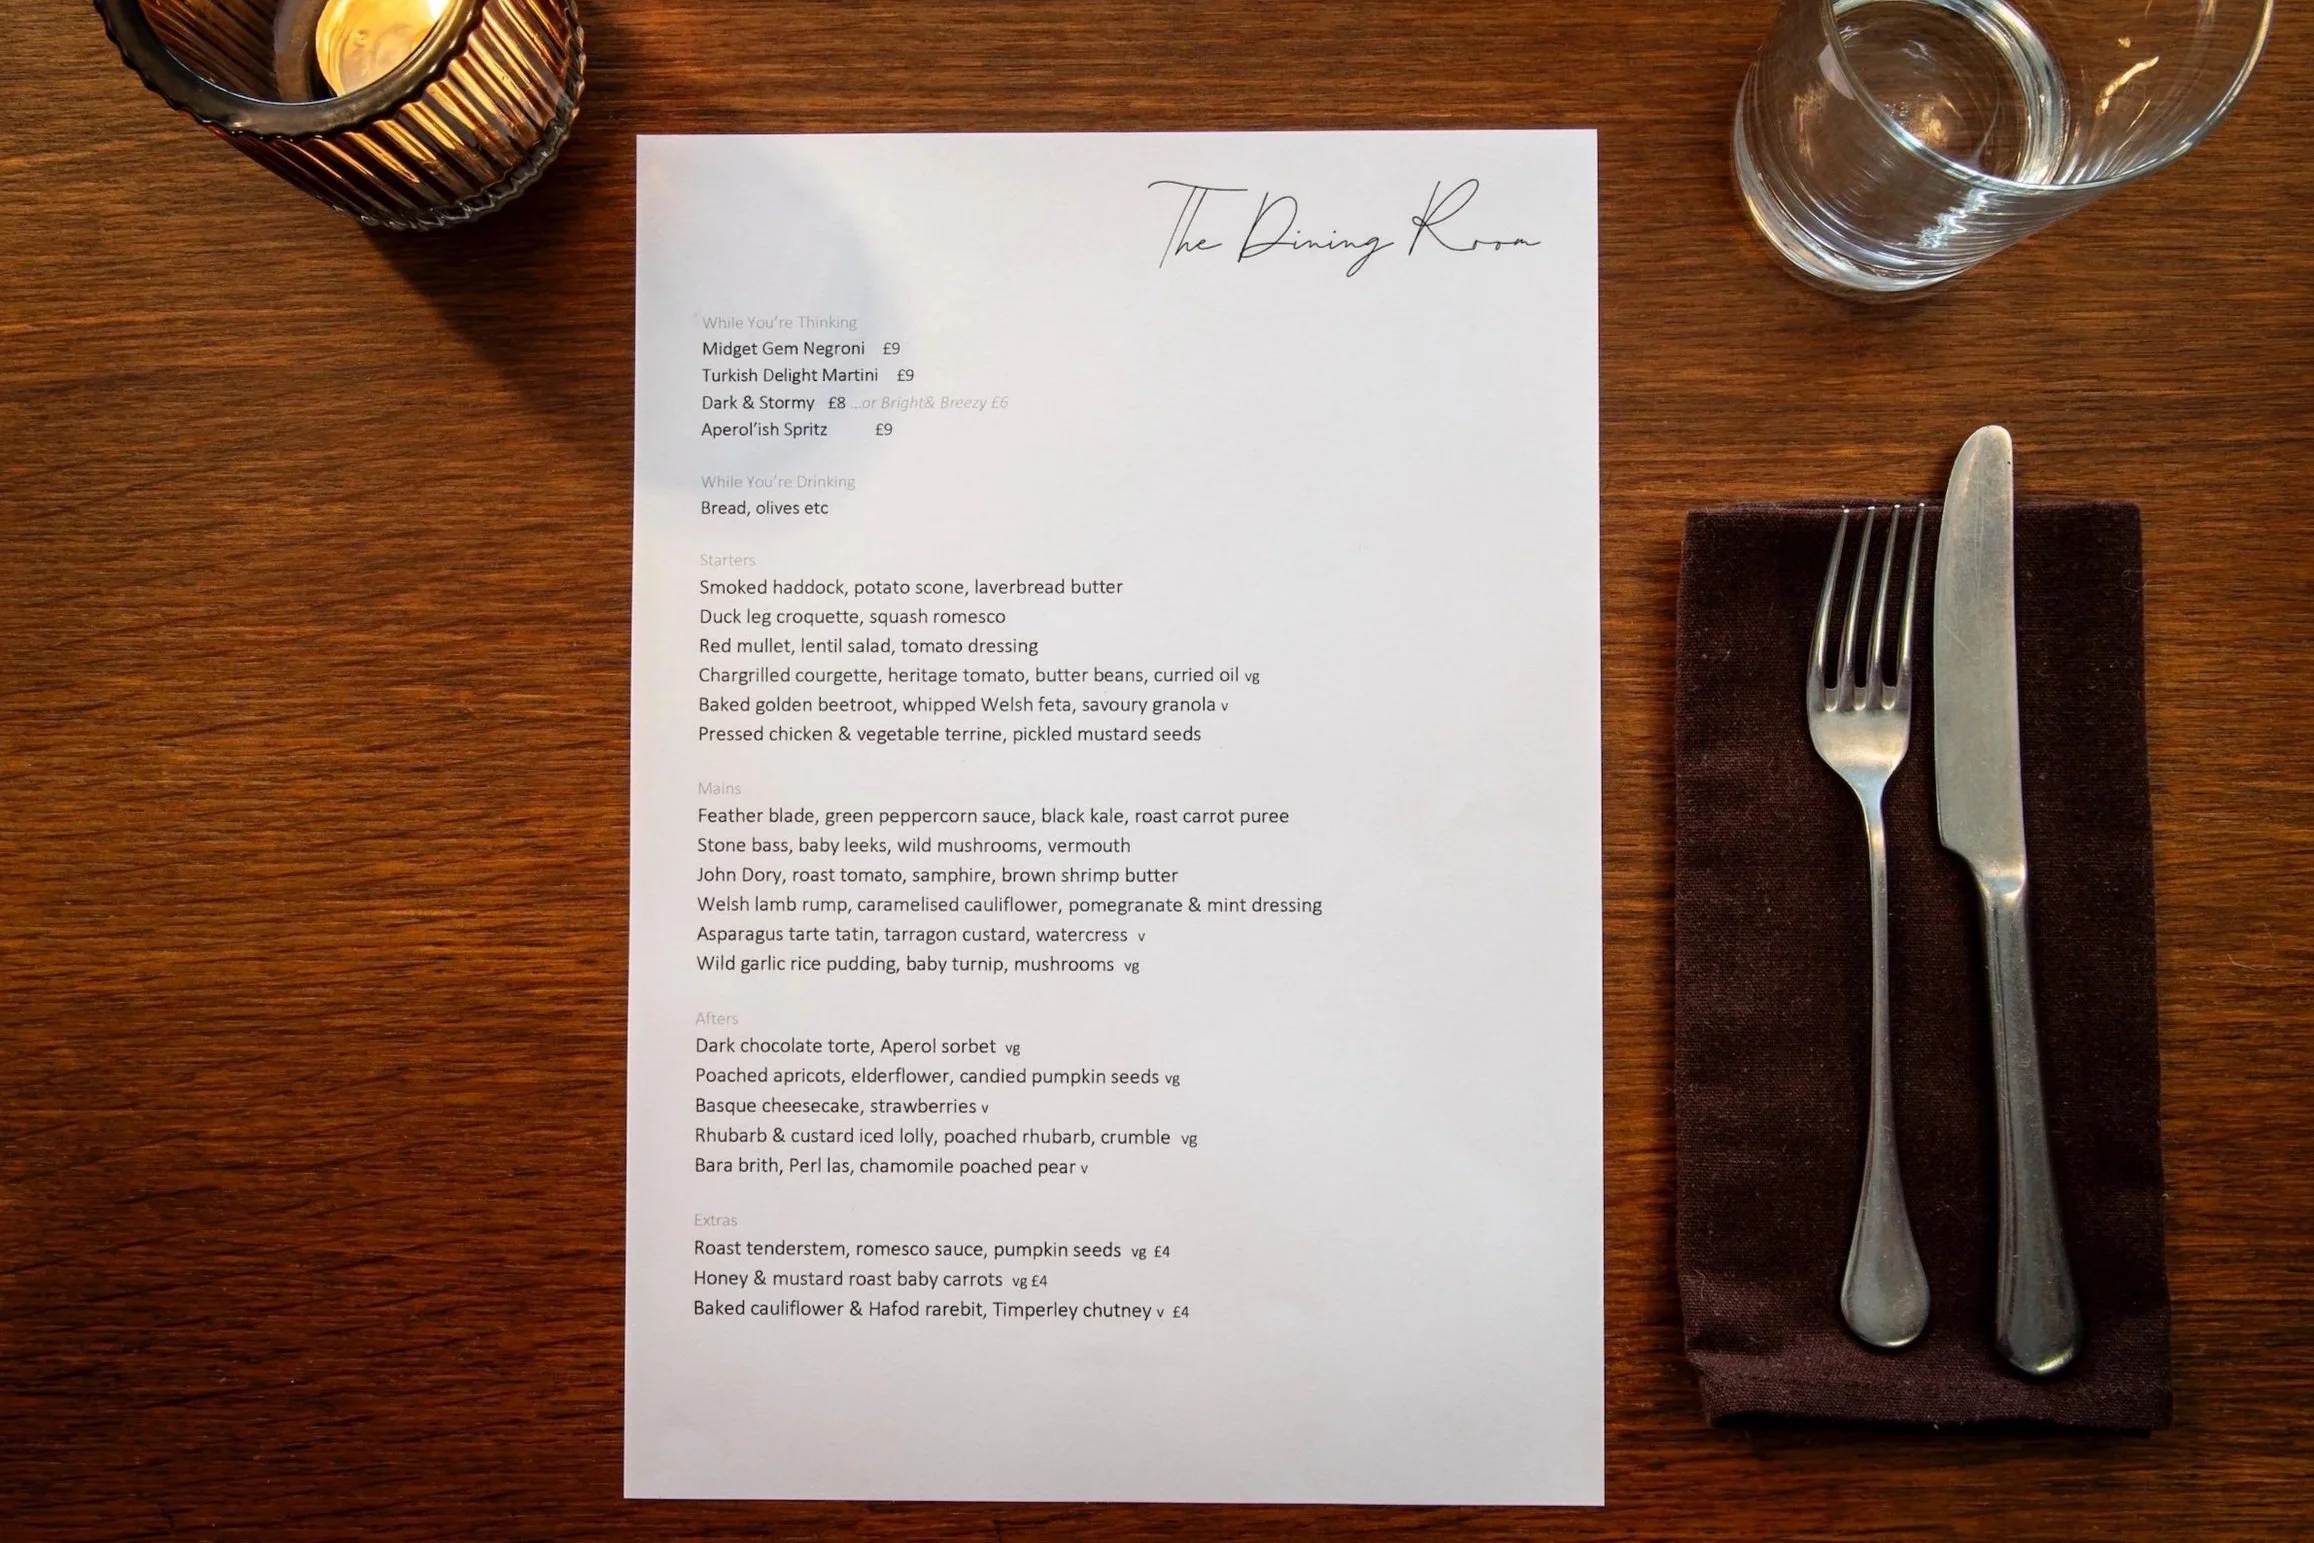 The Dining Room
While You're Thinking
Midget Gem Negroni £9
Turkish Delight Martini £9
Dark & Stormy £8 ...or Bright& Breezy £6
Aperol'ish Spritz £9
While You're Drinking
Bread, olives etc
Starters
Smoked haddock, potato scone, laverbread butter
Duck leg croquette, squash romesco
Red mullet, lentil salad, tomato dressing
Chargrilled courgette, heritage tomato, butter beans, curried oil vg
Baked golden beetroot, whipped Welsh feta, savoury granola v
Pressed chicken & vegetable terrine, pickled mustard seeds
Mains
Feather blade, green peppercorn sauce, black kale, roast carrot puree
Stone bass, baby leeks, wild mushrooms, vermouth
John Dory, roast tomato, samphire, brown shrimp butter
Welsh lamb rump, caramelised cauliflower, pomegranate & mint dressing
Asparagus tarte tatin, tarragon custard, watercress v
Wild garlic rice pudding, baby turnip, mushrooms vg
Afters
Dark chocolate torte, Aperol sorbet vg
Poached apricots, elderflower, candied pumpkin seeds vg
Basque cheesecake, strawberries v
Rhubarb & custard iced lolly, poached rhubarb, crumble vg
Bara brith, Perl las, chamomile poached pear v
Extras
Roast tenderstem, romesco sauce, pumpkin seeds vg £4
Honey & mustard roast baby carrots vg £4
Baked cauliflower & Hafod rarebit, Timperley chutney v £4